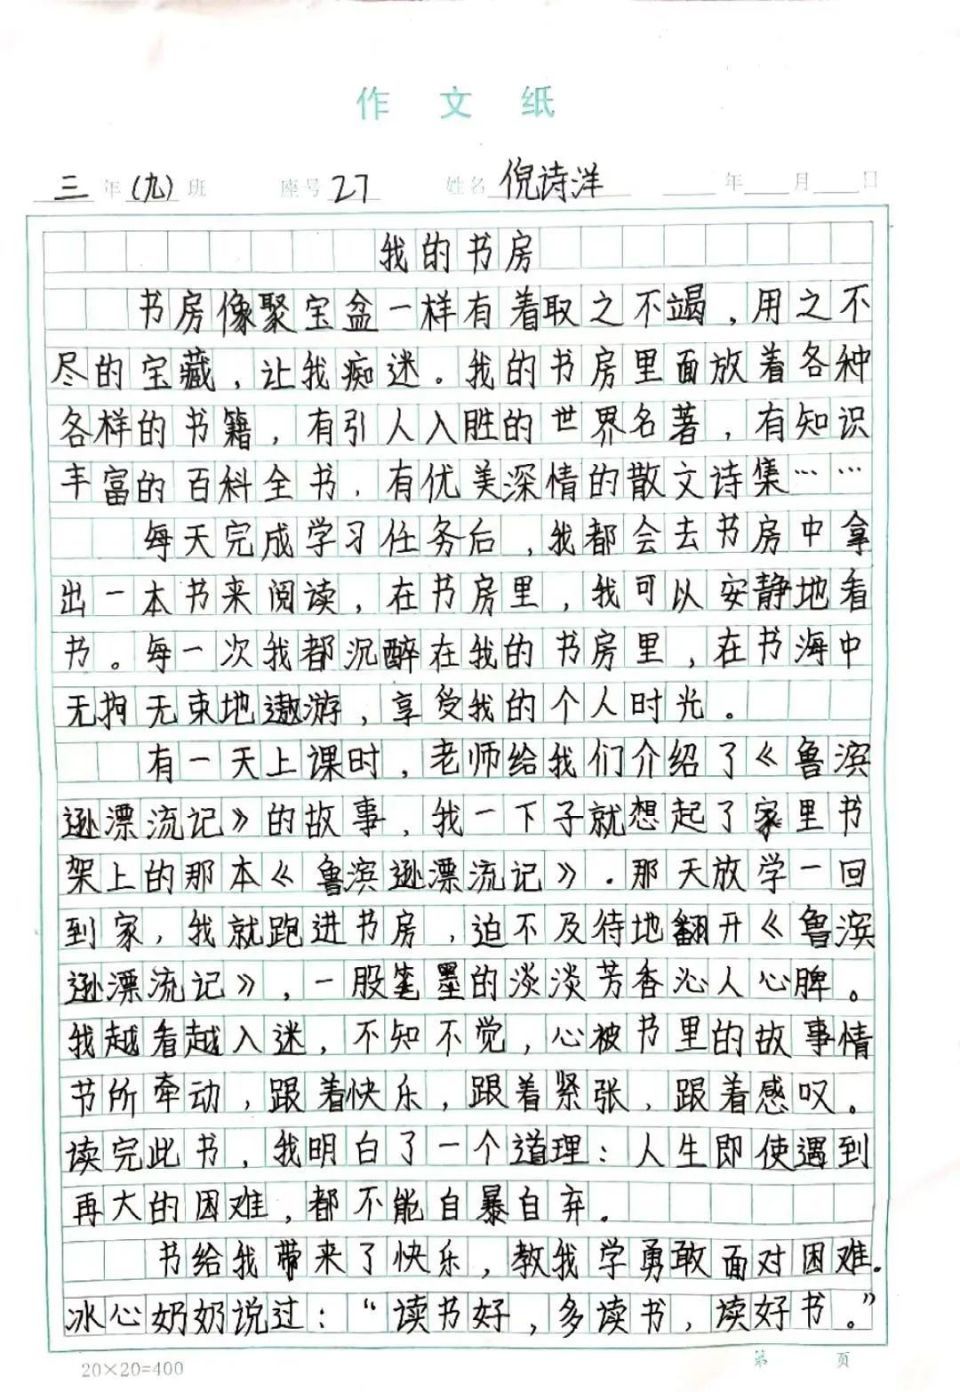 作文纸
三年(九)班 座号27 姓名倪诗洋 年 月 日
我的书房
书房像聚宝盆一样有着取之不竭，用之不
尽的宝藏，让我痴迷。我的书房里面放着各种
各样的书籍，有引人入胜的世界名著，有知识
丰富的百科全书．有优美深情的散文诗集……
每天完成学习任务后，我都会去书房中拿
出一本书来阅读，在书房里，我可以安静地看
书。每一次我都沉醉在我的书房里，在书海中
无拘无束地遨游，享受我的个人时光。
有一天上课时，老师给我们介绍了《鲁滨
逊漂流记》的故事，我一下子就想起了家里书
架上的那本《鲁滨逊漂流记》．那天放学一回
到家，我就跑进书房，迫不及待地翻开《鲁滨
逊漂流记》，一股笔墨的淡淡芳香沁人心脾。
我越看越入迷，不知不觉，心被书里的故事情
节所牵动，跟着快乐，跟着紧张，跟着感叹。
读完此书，我明白了一个道理：人生即使遇到
再大的困难，都不能自暴自弃。
书给我带来了快乐，教我学勇敢面对困难.
冰心奶奶说过：“读书好，多读书，读好书。”
20×20=400 第 页